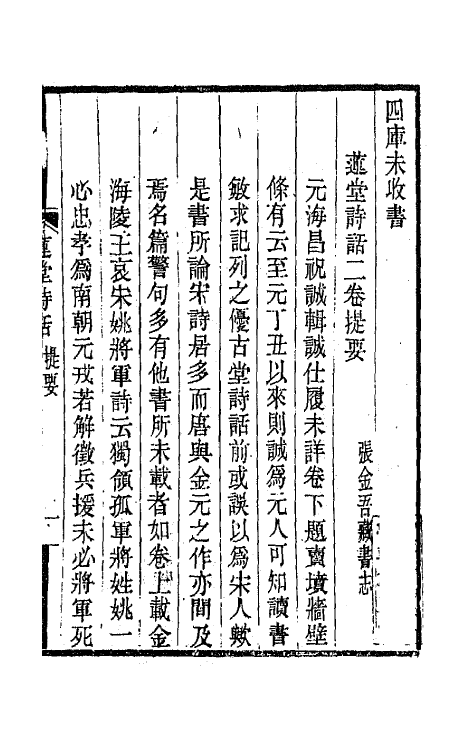 四庫未收書
蓮堂詩話二卷提要
張金吾藏書志
元海昌祝誠輯誠仕履未詳卷下題賣墳牆壁
條有云至元丁丑以來則誠爲元人可知讀書
敏求記列之優古堂詩話前或誤以爲宋人歟
是書所論宋詩居多而唐與金元之作亦間及
焉名篇警句多有他書所未載者如卷上載金
海陵王哀宋姚將軍詩云獨領孤軍將姓姚一
心忠孝爲南朝元戎若解徵兵援未必將軍死
蓮堂詩話
提要
一